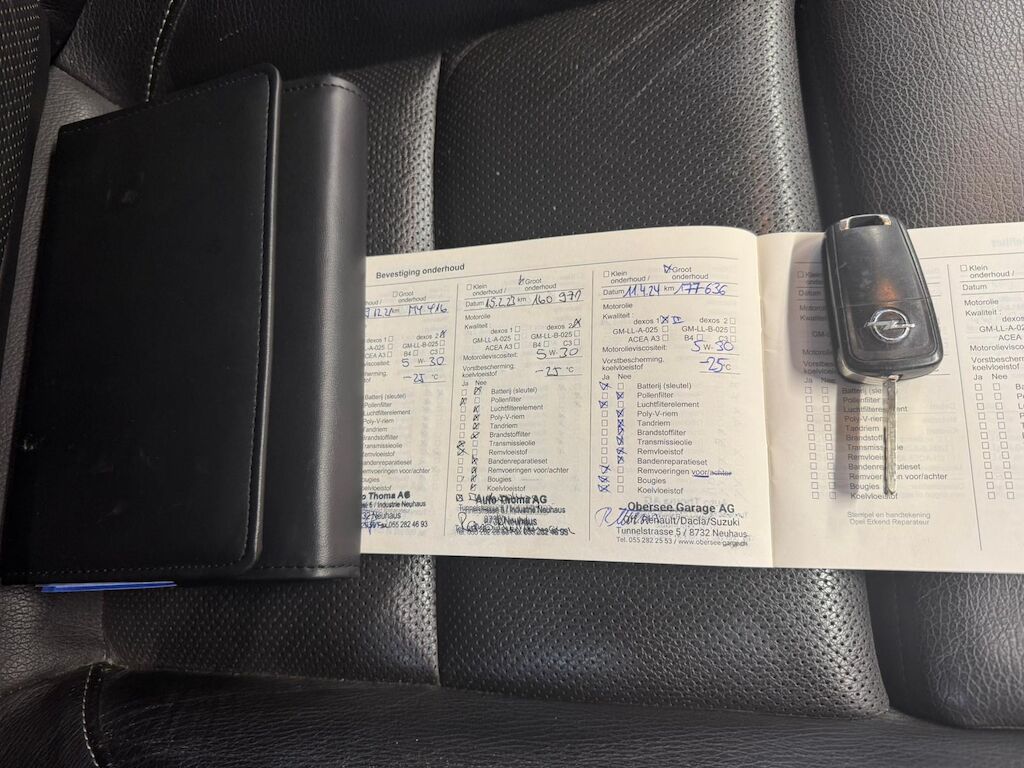 Bevestiging onderhoud
Groot
onderhoud
km 144 416
dexos 2
GM-LL-A-025 GM-LL-B-025
ACEA A3 B4 C3
5 W- 30
-25 °C
o Thoma AG
5 / Industrie Neuhaus
8732 Neuhaus
Fax 055 282 46 93
Klein
onderhoud / Groot
onderhoud
Datum 15.2.23 km 160 971
Motorolie
Kwaliteit : dexos 1 dexos 2
GM-LL-A-025 GM-LL-B-025
ACEA A3 B4 C3
Motorolieviscositeit: 5 W- 30
Vorstbescherming.
koelvloeistof -25 °C
Ja Nee
Batterij (sleutel)
Pollenfilter
Luchtfilterelement
Poly-V-riem
Tandriem
Brandstoffilter
Transmissieolie
Remvloeistof
Bandenreparatieset
Remvoeringen voor/achter
Bougies
Koelvloeistof
Auto Thoma AG
Tunnelstrasse 5 / Industrie Neuhaus
8732 Neuhaus
Klein
onderhoud / Groot
onderhoud
Datum 11.4.24 km 177 636
Motorolie
Kwaliteit : dexos 1 dexos 2
GM-LL-A-025 GM-LL-B-025
ACEA A3 B4 C3
Motorolieviscositeit: 5 W- 30
Vorstbescherming.
koelvloeistof -25 °C
Ja Nee
Batterij (sleutel)
Pollenfilter
Luchtfilterelement
Poly-V-riem
Tandriem
Brandstoffilter
Transmissieolie
Remvloeistof
Bandenreparatieset
Remvoeringen voor/achter
Bougies
Koelvloeistof
Obersee Garage AG
Renault/Dacia/Suzuki
Tunnelstrasse 5 / 8732 Neuhaus
Tel. 055 282 25 53 / www.obersee-garage.ch
Klein
onderhoud
Datum
Motorolie
Kwaliteit :
Ja Nee
Batterij
Pollenfilter
Luchtfilter
Poly-V-riem
Tandriem
Brandstof
Transmissieolie
Remvloeistof
Bandenreparatieset
Remvoeringen voor/achter
Bougies
Koelvloeistof
Stempel en handtekening
Opel Erkend Reparateur
Klein
onderhoud
Datum
Motorolie
Kwaliteit :
GM-L
Motorolie
Vorstbesch
koelvloeistof
Ja Nee